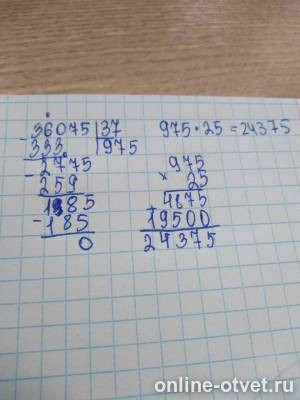 36075|37
-333 |975
2775
-259
185
-185
0
975 · 25 = 24375
975
× 25
4875
+19500
24375
online-otvet.ru